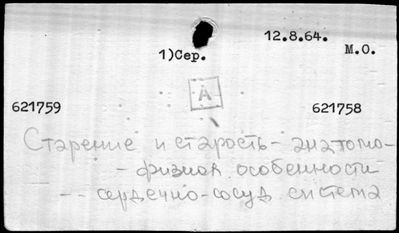 12.8.64.
1)Сер. М.О.
А
621759 621758
Старение и старость - анатомо-
- физиол особенности
-- сердечно-сосуд система